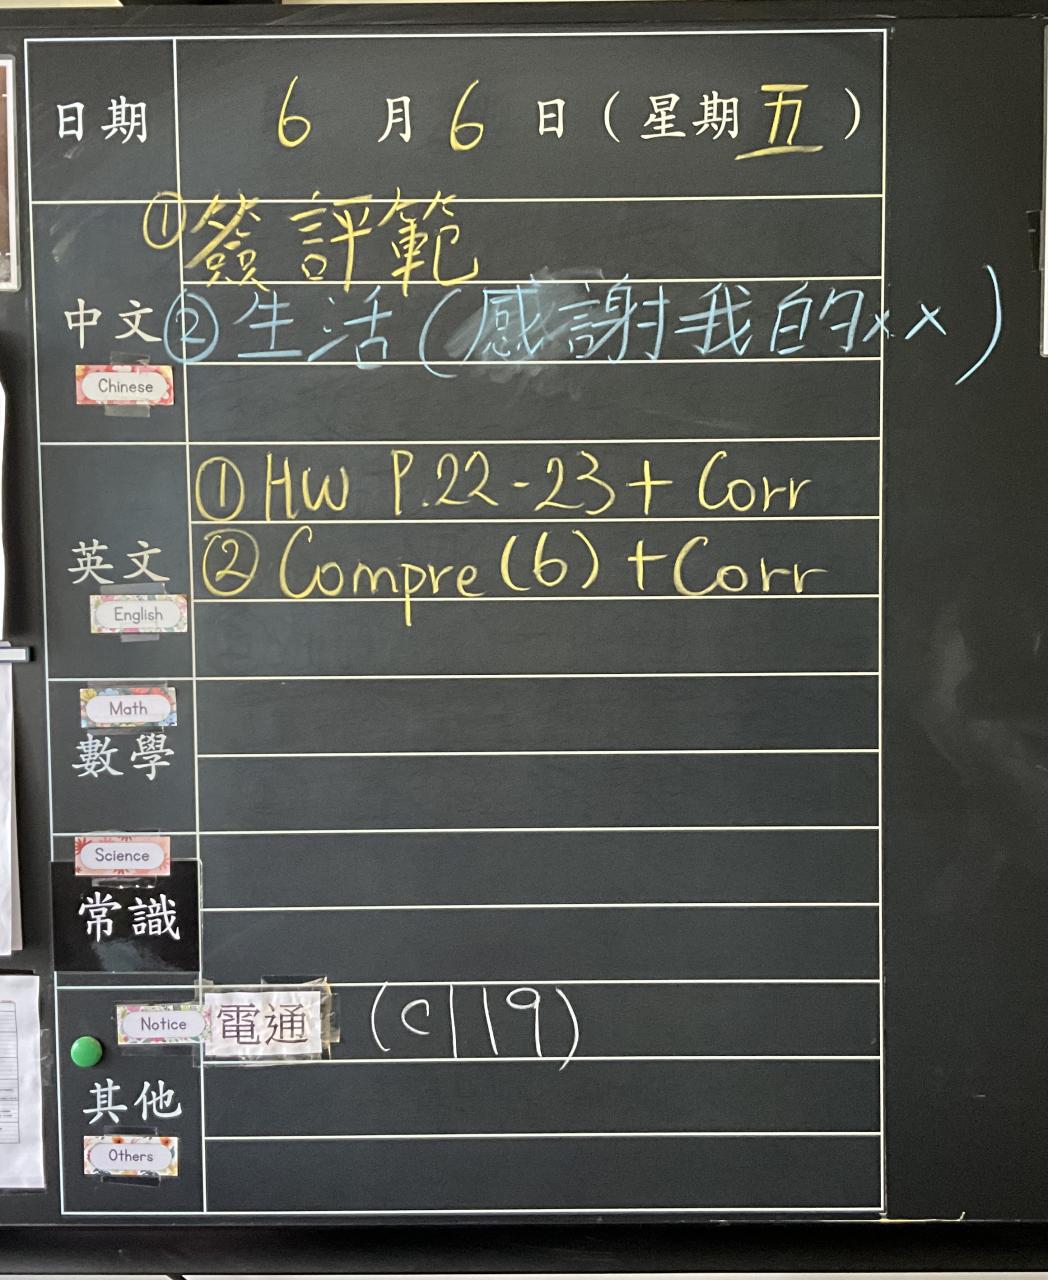 日期 6月6日(星期五)
①簽評範
中文 ②生活(感謝我的xx)
Chinese
①HW P.22-23+Corr
英文 ②Compre(6)+Corr
English
Math
數學
Science
常識
Notice 電通 (c119)
其他
Others